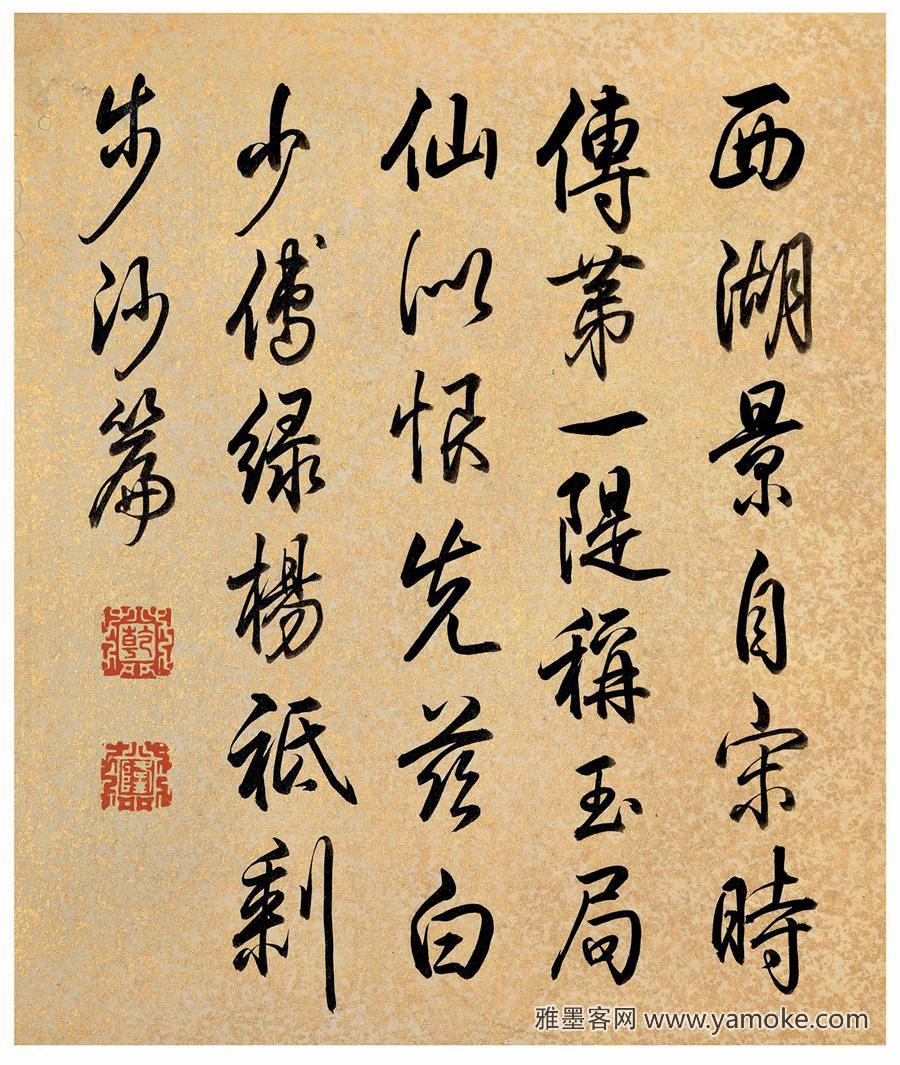 西湖景自宋時
傳第一隄稱玉局
仙似恨先茲白
少傅緑楊祇剩
步沙篇
乾
隆
雅墨客网 www.yamoke.com